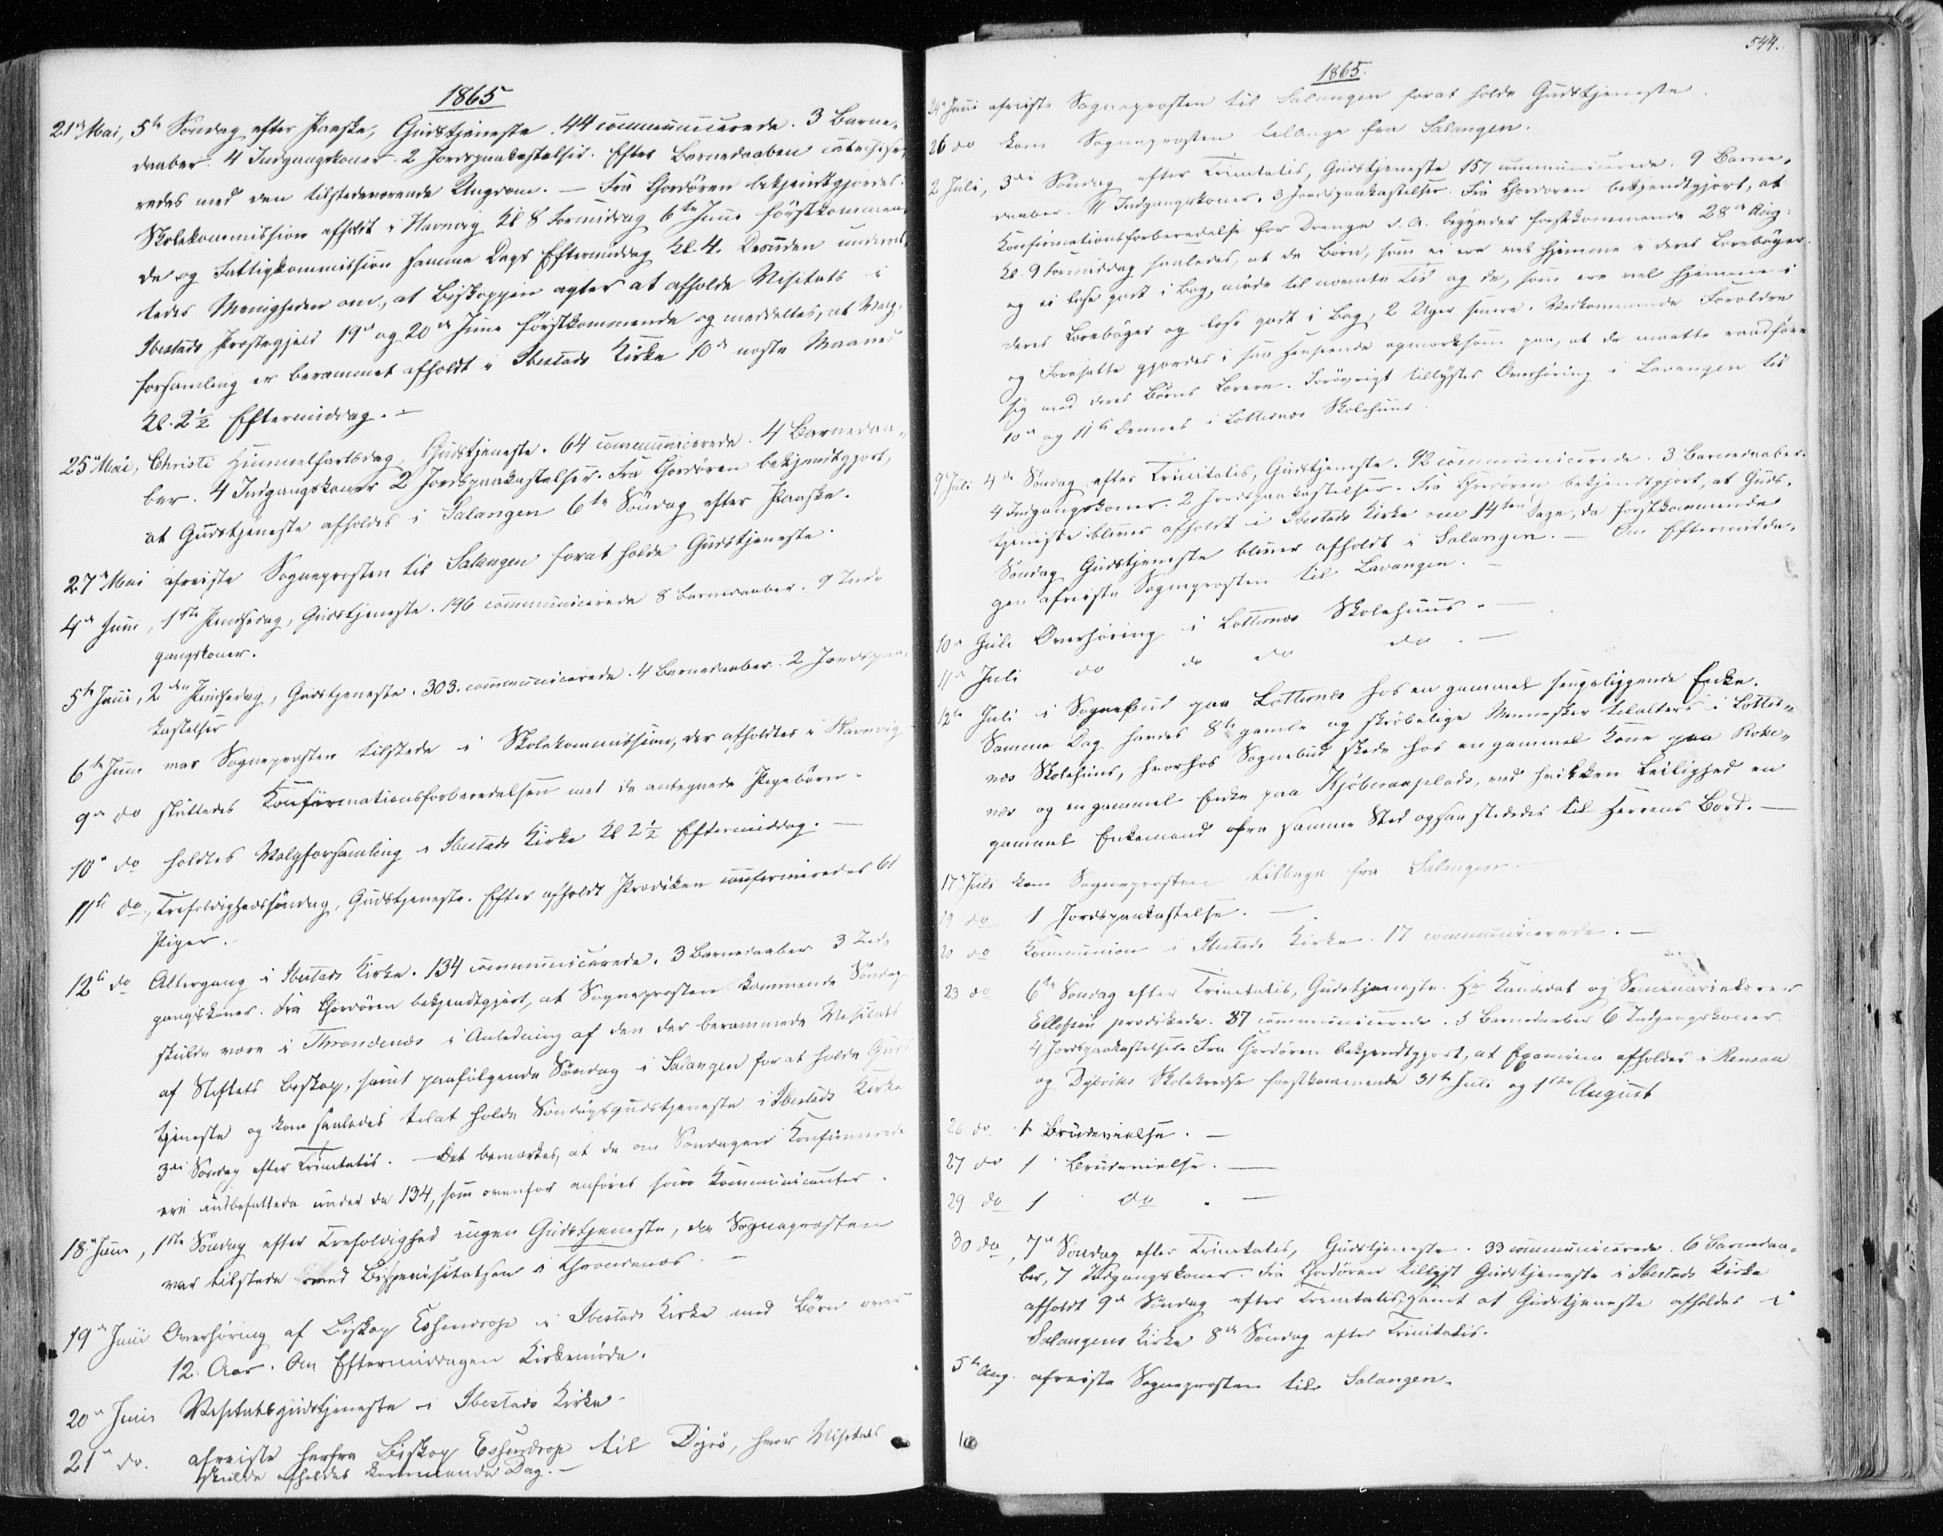 1865
21de Mai, 5te Søndag efter Paaske, Gudstjeneste. 44 communicerede. 3 Barne-
daaber. 4 Indgangskoner. 2 Jordpaakastelser. Efter Barnedaaben catechise-
redes med den tilstedeværende Ungdom. — Fra Chordøren bekjendtgjordes
Skolekommission afholdt i Havnvig Kl 8 Formiddag 6te Juni førstkommen-
de og Fattigkommission samme Dags Eftermiddag Kl. 4. Desuden underret-
tedes Menigheden om, at Biskoppen agter at afholde Visitats i
Ibestads Præstegjeld 19de og 20de Juni førstkommende og meddeltes, at Valg-
forsamling er berammet afholdt i Ibestads Kirke 10de næste Maaned
Kl. 2½ Eftermiddag. —
25de Mai, Christi Himmelfartsdag, Gudstjeneste. 64 communicerede. 4 Barnedaa-
ber. 4 Indgangskoner 2 Jordspaakastelser. Fra Chordøren bekjendtgjort,
at Gudstjeneste afholdes i Salangen 6te Søndag efter Paaske.
27de Mai afreiste Sogneprøsten til Salangen forat holde Gudstjeneste.
4de Juni, 1ste Pintsedag, Gudstjeneste. 196 communicerede 8 Barnedaaber. 9 Ind-
gangskoner.
5te Juni, 2den Pintsedag, Gudstjeneste. 303. communicerede. 4 Barnedaaber. 2 Jordspaa-
kastelser
6te Juni var Sogneprøsten tilstede i Skolekommission, der afholdtes i Havnvig
9de do sluttedes Konfirmationsforberedelsen med de antegnede Pigebørn.
10de do holdtes Valgforsamling i Ibestads Kirke Kl 2½ Eftermiddag. —
11te do, Trefoldighedssøndag, Gudstjeneste. Efter afholdt Prædiken confirmeredes 61
Piger. —
12te do Altergang i Ibestads Kirke. 134 communicerede. 3 Barnedaaber 3 Ind-
gangskoner. Fra Chordøren bekjendtgjort, at Sogneprøsten kommende Søndag
skulde være i Throndenæs i Anledning af den der berammede Visitats
af Stiftets Biskop, samt paafølgende Søndag i Salangen forat holde Guds
tjeneste og kom saaledes til at holde Søndagsgudstjeneste i Ibestads Kirke
3die Søndag efter Trinitatis. — Det bemærkes, at de om Søndagen Konfirmerede
ere indbefattede under de 134, som ovenfor anføres som Kommunicanter.
18de Juni, 1ste Søndag efter Trefoldighed ingen Gudstjeneste, da Sogneprøsten
var tilstede ved Bispevisitatsen i Throndenæs. —
19de Juni Overhøring af Biskop Essendrop i Ibestads Kirke med Børn over
12 Aar. Om Eftermiddagen Kirkemøde.
20de Juni Visitatsgudstjeneste i Ibestads Kirke
21de do. afreiste herfra Biskop Essendrop til Dyrø, hvor Visitats
skulde afholdes kommende Dag. —
544.
1865.
24de Juni afreiste Sogneprøsten til Salangen forat holde Gudstjeneste.
26 do kom Sogneprøsten tilbage fra Salangen.
2 Juli, 3die Søndag efter Trinitatis, Gudstjeneste 157 communicerede. 9 Barne-
daaber. 4 Indgangskoner. 3 Jordspaakastelser. Fra Chordøren bekjendtgjort, at
Konfirmationsforberedelse for Drenge d. A. begynder førstkommende 28de Aug.
Kl. 9 Formiddag saaledes, at de Børn, som ei ere vel hjemme i deres Lærebøger
og ei læse godt i Bog, møde til nævnte Tid og de, som ere vel hjemme i
deres Lærebøger og læse godt i Bog, 2 Uger senere. Vedkommende Forældre
og Foresatte gjordes i saa Henseende opmærksom paa, at de maatte raadføre
sig med deres Børns Lærere. Forøvrigt tillystes Overhøring i Lavangen til
10de og 11te dennes i Lottenæs Skolehuus.
9 Juli 4de Søndag efter Trinitatis, Gudstjeneste. 92 communicerede. 3 Barnedaaber.
4 Indgangskoner. 2 Jordspaakastelser. Fra Chordøren bekjendtgjort, at Guds-
tjeneste bliver afholdt i Ibestads Kirke om 14ten Dage, da førstkommende
Søndag Gudstjeneste bliver afholdt i Salangen. — Om Eftermidda-
gen afreiste Sogneprøsten til Lavangen. —
10de Juli Overhøring i Lottenæs Skolehuus. —
11te Juli do do do do. —
12te Juli i Sognebud paa Lottenæs hos en gammel sengeliggende Enke.
Samme Dag havdes 8te gamle og skrøbelige Mennesker tilalters i Lotte-
næs Skolehuus, hvorhos Sognebud skede hos en gammel Kone paa Roke-
næs og en gammel Enke paa Kjøbmanplads, ved hvilken Leilighed en
gammel Enkemand fra samme Sted ogsaa stededes til Herrens Bord. —
17de Juli kom Sogneprøsten tilbage fra Salangen. —
19 do 1 Jordspaakastelse. —
20 do Communion i Ibestads Kirke. 17 communicerede. —
23 do 6te Søndag efter Trinitatis, Gudstjeneste. Hr Kandidat og Seminarielærer
Ellefsen prædikede. 87 communicerede. 5 Barnedaaber 6 Indgangskoner
4 Jordspaakastelser. Fra Chordøren bekjendtgjort, at Examina afholdes i
og Skolekredse førstkommende 31te Juli og 1ste August
26 do 1 Brudevielse. —
27 do 1 Brudevielse. —
29 do 1 do. —
30 do, 7de Søndag efter Trinitatis, Gudstjeneste. 33 communicerede. 6 Barnedaa-
ber, 7 Indgangskoner. Fra Chordøren tillyst Gudstjeneste i Ibestads Kirke
afholdt 9de Søndag efter Trinitatis, samt at Gudstjeneste afholdes i
Salangens Kirke 8de Søndag efter Trinitatis.
5te Aug. afreiste Sogneprøsten til Salangen.